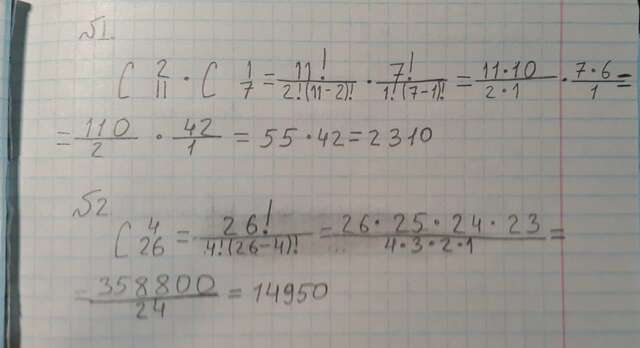 №1.
C 2 11 · C 1 7 = 11!/2!(11-2)! · 7!/1!(7-1)! = 11·10/2·1 · 7·6/1 =
= 110/2 · 42/1 = 55·42 = 2310
№2
C 4 26 = 26!/4!(26-4)! = 26·25·24·23/4·3·2·1 =
= 358800/24 = 14950